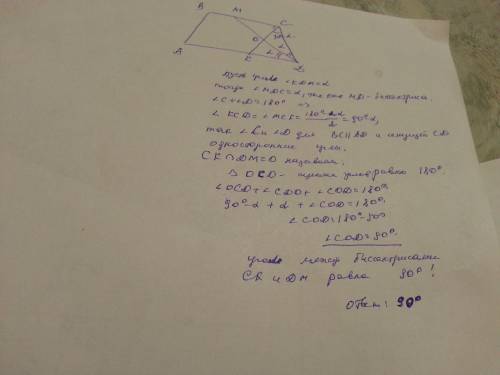 B M C
A K D
O
пусть угол ∠KDM=α
тогда ∠MDC=α, так как MD - биссектриса
∠C+∠D=180° =>
∠KCD=∠MCK=(180°-2α)/2=90°-α,
так ∠C и ∠D для BC||AD и секущей CD
односторонние углы.
CK∩DM=O назовем.
△OCD - сумма углов равна 180°.
∠OCD+∠CDO+∠COD=180°
90°-α+α+∠COD=180°
∠COD=180°-90°
∠COD=90°
угол между биссектрисами
CK и DM равна 90°!
Ответ: 90°